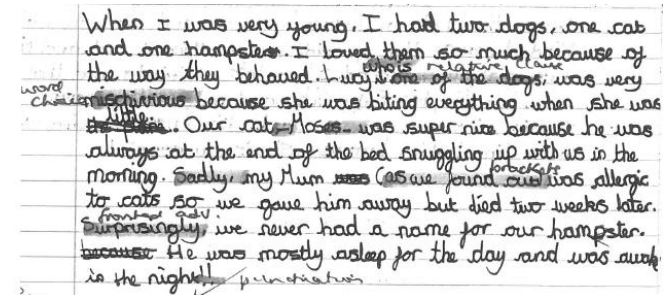 When I was very young, I had two dogs, one cat
and one hampster. I loved them so much because of
who is relative clause
the way they behaved. Lucy, one of the dogs, was very
word choice
mischivious because she was biting everything when she was
little. Our cat - Moses - was super nice because he was
always at the end of the bed snuggling up with us in the
brackets
morning. Sadly, my Mum (as we found out) was allergic
to cats so we gave him away but died two weeks later.
fronted adv.
Surprisingly, we never had a name for our hampster.
because He was mostly asleep for the day and was awake
in the night!! punctuation